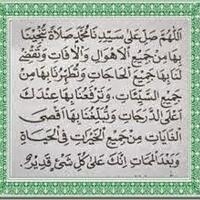 اَللّٰهُمَّ صَلِّ عَلٰى سَيِّدِنَا مُحَمَّدٍ صَلَاةً تُنْجِيْنَا
بِهَا مِنْ جَمِيْعِ الْاَهْوَالِ وَالْاٰفَاتِ وَتَقْضِيْ
لَنَا بِهَا جَمِيْعَ الْحَاجَاتِ وَتُطَهِّرُنَا بِهَا مِنْ
جَمِيْعِ السَّيِّئَاتِ وَتَرْفَعُنَا بِهَا عِنْدَكَ
اَعْلَى الدَّرَجَاتِ وَتُبَلِّغُنَا بِهَا اَقْصَى
الْغَايَاتِ مِنْ جَمِيْعِ الْخَيْرَاتِ فِى الْحَيَاةِ
وَبَعْدَ الْمَمَاتِ اِنَّكَ عَلٰى كُلِّ شَيْءٍ قَدِيْرٌ